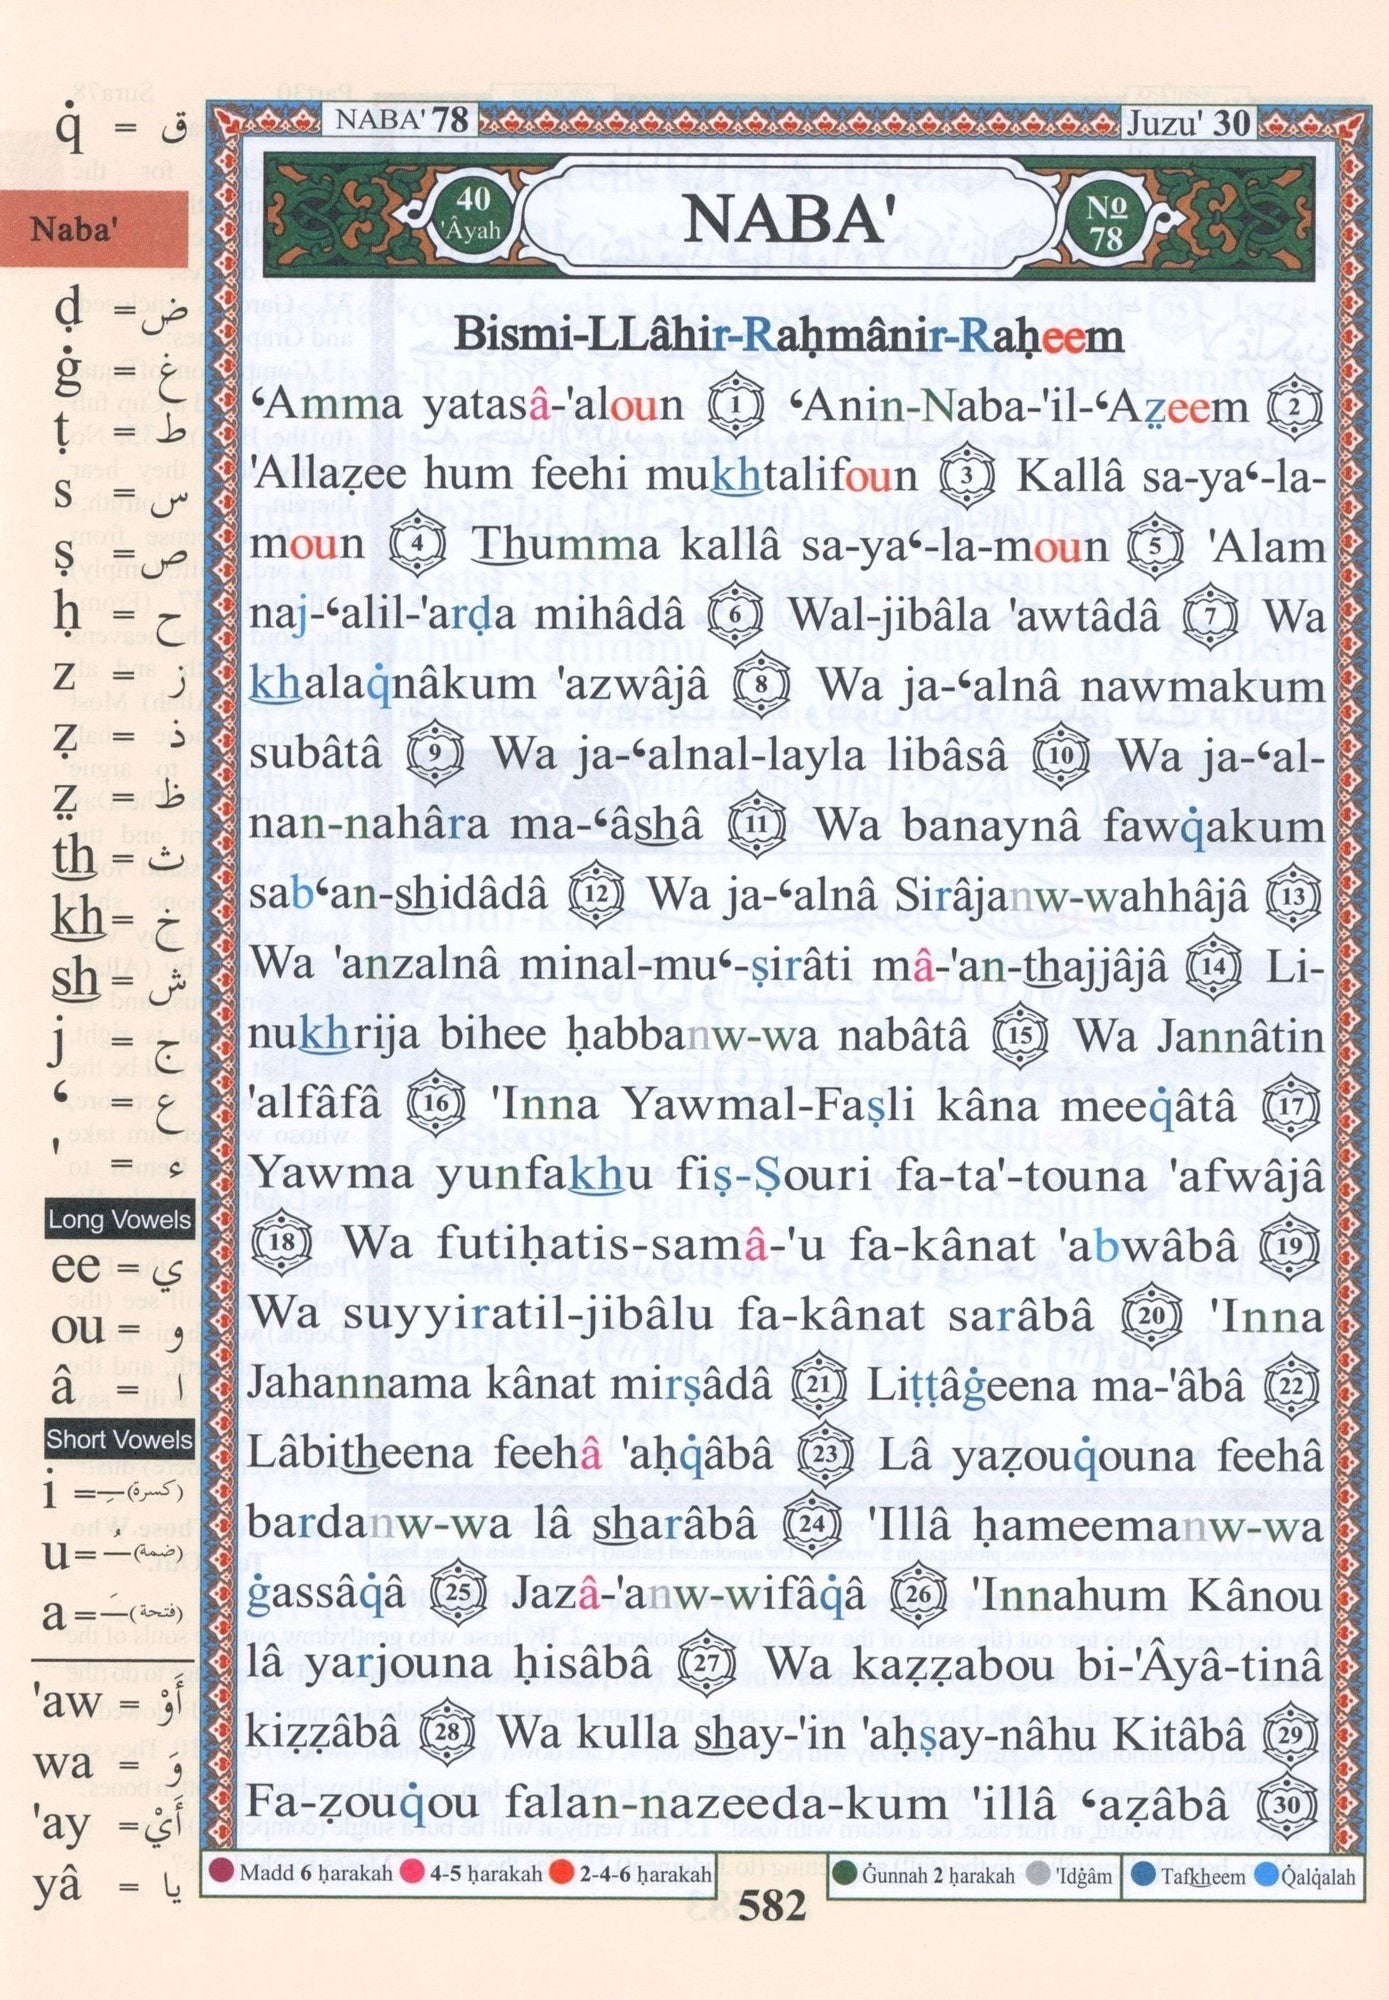 NABA' 78
Juzu' 30
40 'Âyah
NABA'
No 78
Bismi-LLâhir-Raḥmânir-Raḥeem
‘Amma yatasâ-'aloun 1 ‘Anin-Naba-'il-‘Aẓ̤eem 2
'Allaẓee hum feehi mukhtalifoun 3 Kallâ sa-ya‘-la-
moun 4 Thumma kallâ sa-ya‘-la-moun 5 'Alam
naj-‘alil-'arḍa mihâdâ 6 Wal-jibâla 'awtâdâ 7 Wa
khalaq̇nâkum 'azwâjâ 8 Wa ja-‘alnâ nawmakum
subâtâ 9 Wa ja-‘alnal-layla libâsâ 10 Wa ja-‘al-
nan-nahâra ma-‘âshâ 11 Wa banaynâ fawq̇akum
sab‘an-shidâdâ 12 Wa ja-‘alnâ Sirâjanw-wahhâjâ 13
Wa 'anzalnâ minal-mu‘-ṣirâti mâ-'an-thajjâjâ 14 Li-
nukhrija bihee ḥabbanw-wa nabâtâ 15 Wa Jannâtin
'alfâfâ 16 'Inna Yawmal-Faṣli kâna meeq̇âtâ 17
Yawma yunfakhu fiṣ-Ṣouri fa-ta'-touna 'afwâjâ
18 Wa futiḥatis-samâ-'u fa-kânat 'abwâbâ 19
Wa suyyiratil-jibâlu fa-kânat sarâbâ 20 'Inna
Jahannama kânat mirṣâdâ 21 Liṭṭâġeena ma-'âbâ 22
Lâbitheena feehâ 'aḥq̇âbâ 23 Lâ yaẓouq̇ouna feehâ
bardanw-wa lâ sharâbâ 24 'Illâ ḥameemanw-wa
ġassâq̇â 25 Jazâ-'anw-wifâq̇â 26 'Innahum Kânou
lâ yarjouna ḥisâbâ 27 Wa kaẓẓabou bi-'Âyâ-tinâ
kiẓẓâbâ 28 Wa kulla shay-'in 'aḥṣay-nâhu Kitâbâ 29
Fa-ẓouq̇ou falan-nazeeda-kum 'illâ ‘aẓâbâ 30
q̇ = ق
Naba'
ḍ = ض
ġ = غ
ṭ = ط
s = س
ṣ = ص
ḥ = ح
z = ز
ẓ = ذ
ẓ̤ = ظ
th = ث
kh = خ
sh = ش
j = ج
‘ = ع
' = ء
Long Vowels
ee = ي
ou = و
â = ا
Short Vowels
i = ـِ (كسرة)
u = ـُ (ضمة)
a = ـَ (فتحة)
'aw = أَوْ
wa = وَ
'ay = أَيْ
yâ = يا
Madd 6 ḥarakah 4-5 ḥarakah 2-4-6 ḥarakah
Ġunnah 2 ḥarakah 'Idġâm Tafkheem Qalq̇alah
582